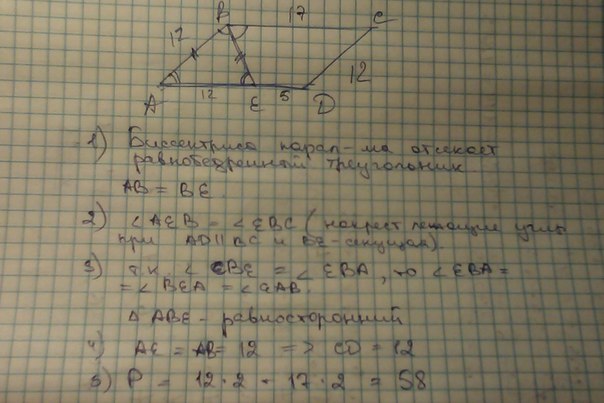 B 17 C
12 12
A 12 E 5 D
1) Биссектриса парал-ма отсекает
равнобедренный треугольник.
AB = BE.
2) < AEB = < EBC (накрест лежащие углы
при AD || BC и BE - секущая).
3) т.к. < CBE = < EBA, то < EBA =
= < BEA = < EAB.
Δ ABE - равносторонний
4) AE = AB = 12 => CD = 12
5) P = 12·2 + 17·2 = 58